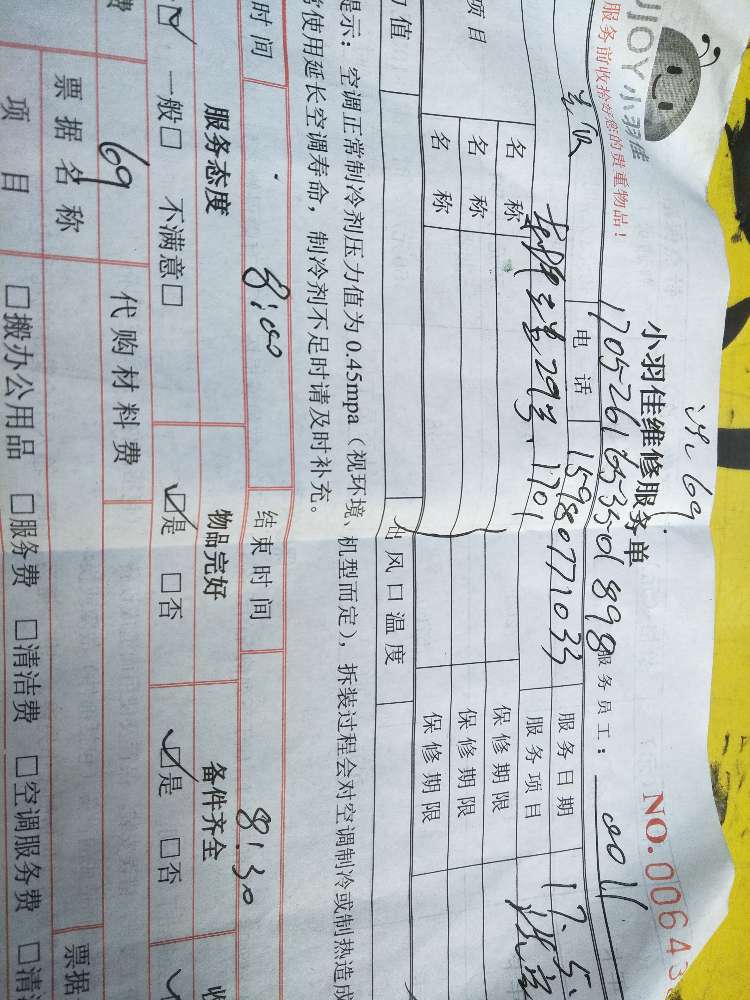 JOY 小羽佳
服务前收拾好您的贵重物品!
69
小羽佳维修服务单
NO.00643
1705261653501898
服务员工:
0011
电话
15980771033
服务日期
17.5.
29号 1701
服务项目
项目
名称
保修期限
名称
保修期限
名称
保修期限
力值
出风口温度
提示:空调正常制冷剂压力值为 0.45mpa(视环境、机型而定),拆装过程会对空调制冷或制热造成
使用延长空调寿命,制冷剂不足时请及时补充。
时间
8:00
结束时间
8:30
服务态度
物品完好
备件齐全
一般□ 不满意□
☑是 □否
☑是 □否
费
69
代购材料费
票据名称
票据
项目
□搬办公用品 □服务费 □清洁费 □空调服务费 □清